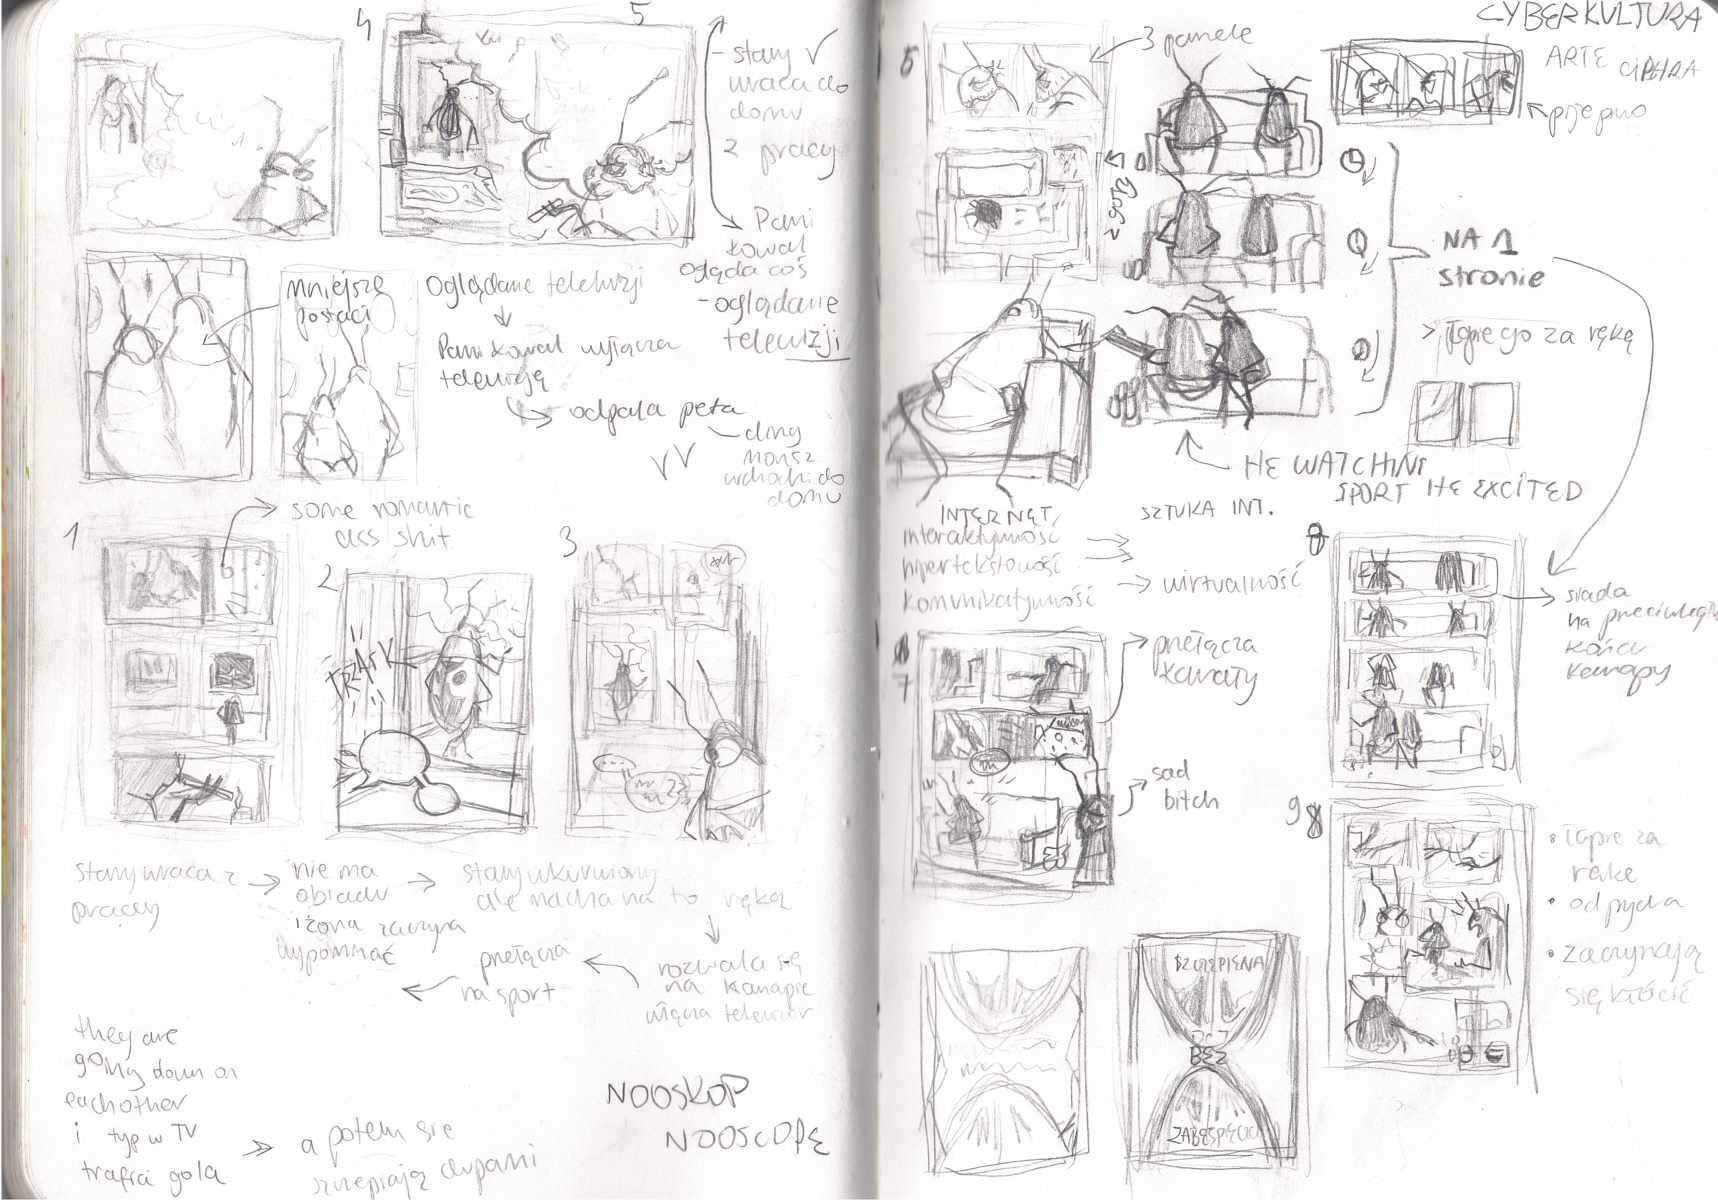 4
5
- stary
wraca do
domu
z pracy
Pani
kowal
ogląda coś
- oglądanie
telewizji
mniejsze
postaci
oglądanie telewizji
Pani kowal wyłącza
telewizję
odpala peta
some romantic
ass shit
1
2
3
TRZASK
!!
stary wraca z
pracy
nie ma
obiadu
i żona zaczyna
wypominać
stary wkurwiony
ale macha na to ręką
rozwala się
na kanapie
włącza telewizor
przełącza
na sport
they are
going down on
eachother
i typ w TV
trafia gola
a potem się
szczepiają dupami
NOOSKOP
NOOSCOPE
CYBERKULTURA
ARTE CIPHRA
3 panele
pije piwo
z góry
NA 1
stronie
> łapie go za rękę
HE WATCHIN
SPORT HE EXCITED
INTERNET,
interaktywność
hipertekstowość
komunikatywność
SZTUKA INT.
wirtualność
8
siada
na przeciwległym
końcu
kanapy
7
przełącza
kanały
sad
bitch
9
• łapie za
rękę
• odpycha
• zaczynają
się kłócić
BEZ